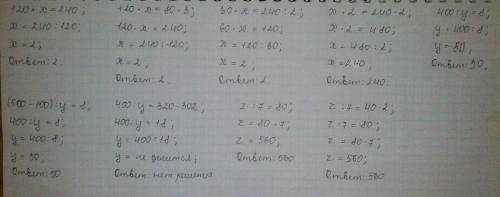 120 · x = 240;
x = 240 : 120;
x = 2;
Ответ: 2.
120 · x = 80 · 3;
120 · x = 240;
x = 240 : 120;
x = 2,
Ответ: 2.
60 · x = 120;
x = 2,
Ответ: 2
x · 2 = 240 · 2;
x · 2 = 480;
x = 480 : 2;
x = 240,
Ответ: 240.
400 : y = 8;
y = 400 : 8;
y = 50,
Ответ: 50.
400 : y = 8;
y = 400 : 8;
y = 50,
Ответ: 50
400 : y = 320 - 302,
400 : y = 18,
y = 400 : 18;
y = не решится;
Ответ: нет решения
z : 7 = 80;
z = 80 · 7;
z = 560;
Ответ: 560
z : 7 = 40 · 2;
z : 7 = 80;
z = 80 · 7;
z = 560;
Ответ: 560